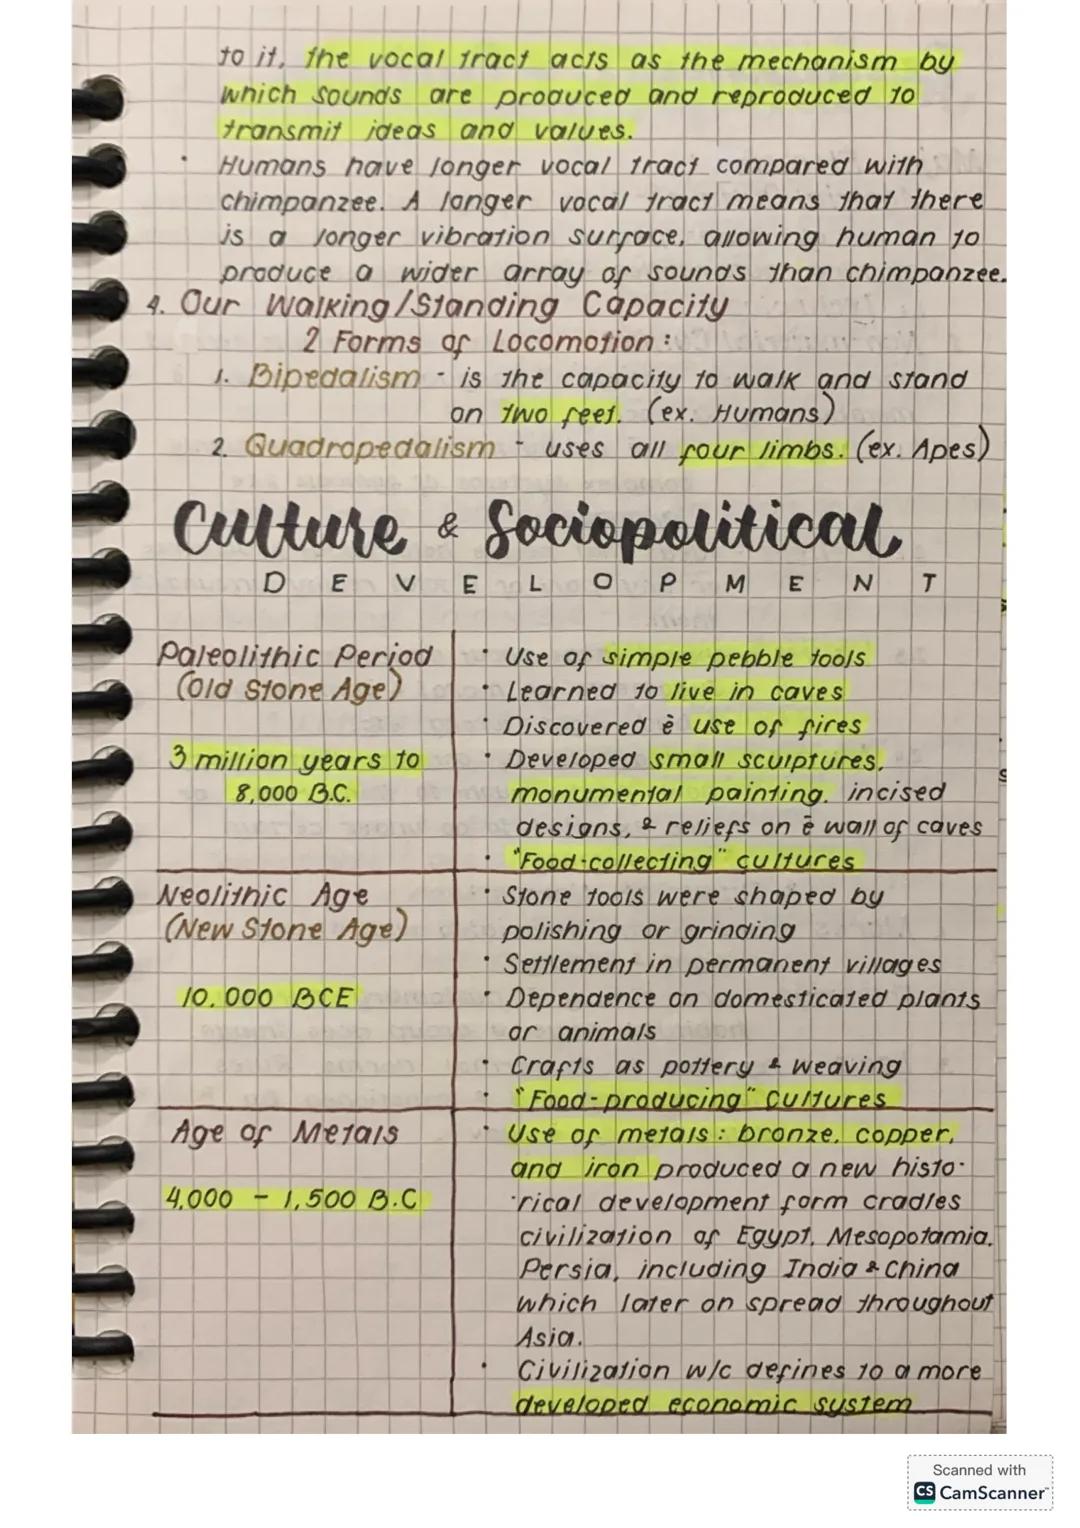 to it, the vocal tract acts as the mechanism by
which sounds are produced and reproduced to
transmit ideas and values.
• Humans have longer vocal tract compared with
chimpanzee. A longer vocal tract means that there
is a longer vibration surface, allowing human to
produce a wider array of sounds than chimpanzee.
4. Our Walking/Standing Capacity
2 Forms of Locomotion:
1. Bipedalism - is the capacity to walk and stand
on two feet. (ex. Humans)
2. Quadropedalism - uses all four limbs. (ex. Apes)
Culture & Sociopolitical
DEVELOPMENT
Paleolithic Period
(Old Stone Age)
3 million years to
8,000 B.C.
• Use of simple pebble tools
• Learned to live in caves
• Discovered ē use of fires
• Developed small sculptures,
monumental painting, incised
designs, & reliefs on ē wall of caves
• "Food-collecting" cultures
Neolithic Age
(New Stone Age)
10,000 BCE
• Stone tools were shaped by
polishing or grinding
• Settlement in permanent villages
• Dependence on domesticated plants
or animals
• Crafts as pottery & weaving
• "Food-producing" cultures
Age of Metals
4,000 - 1,500 B.C
• Use of metals: bronze, copper,
and iron produced a new histo-
-rical development form cradles
civilization of Egypt, Mesopotamia,
Persia, including India & China
which later on spread throughout
Asia.
• Civilization w/c defines to a more
developed economic system
Scanned with
CS CamScanner